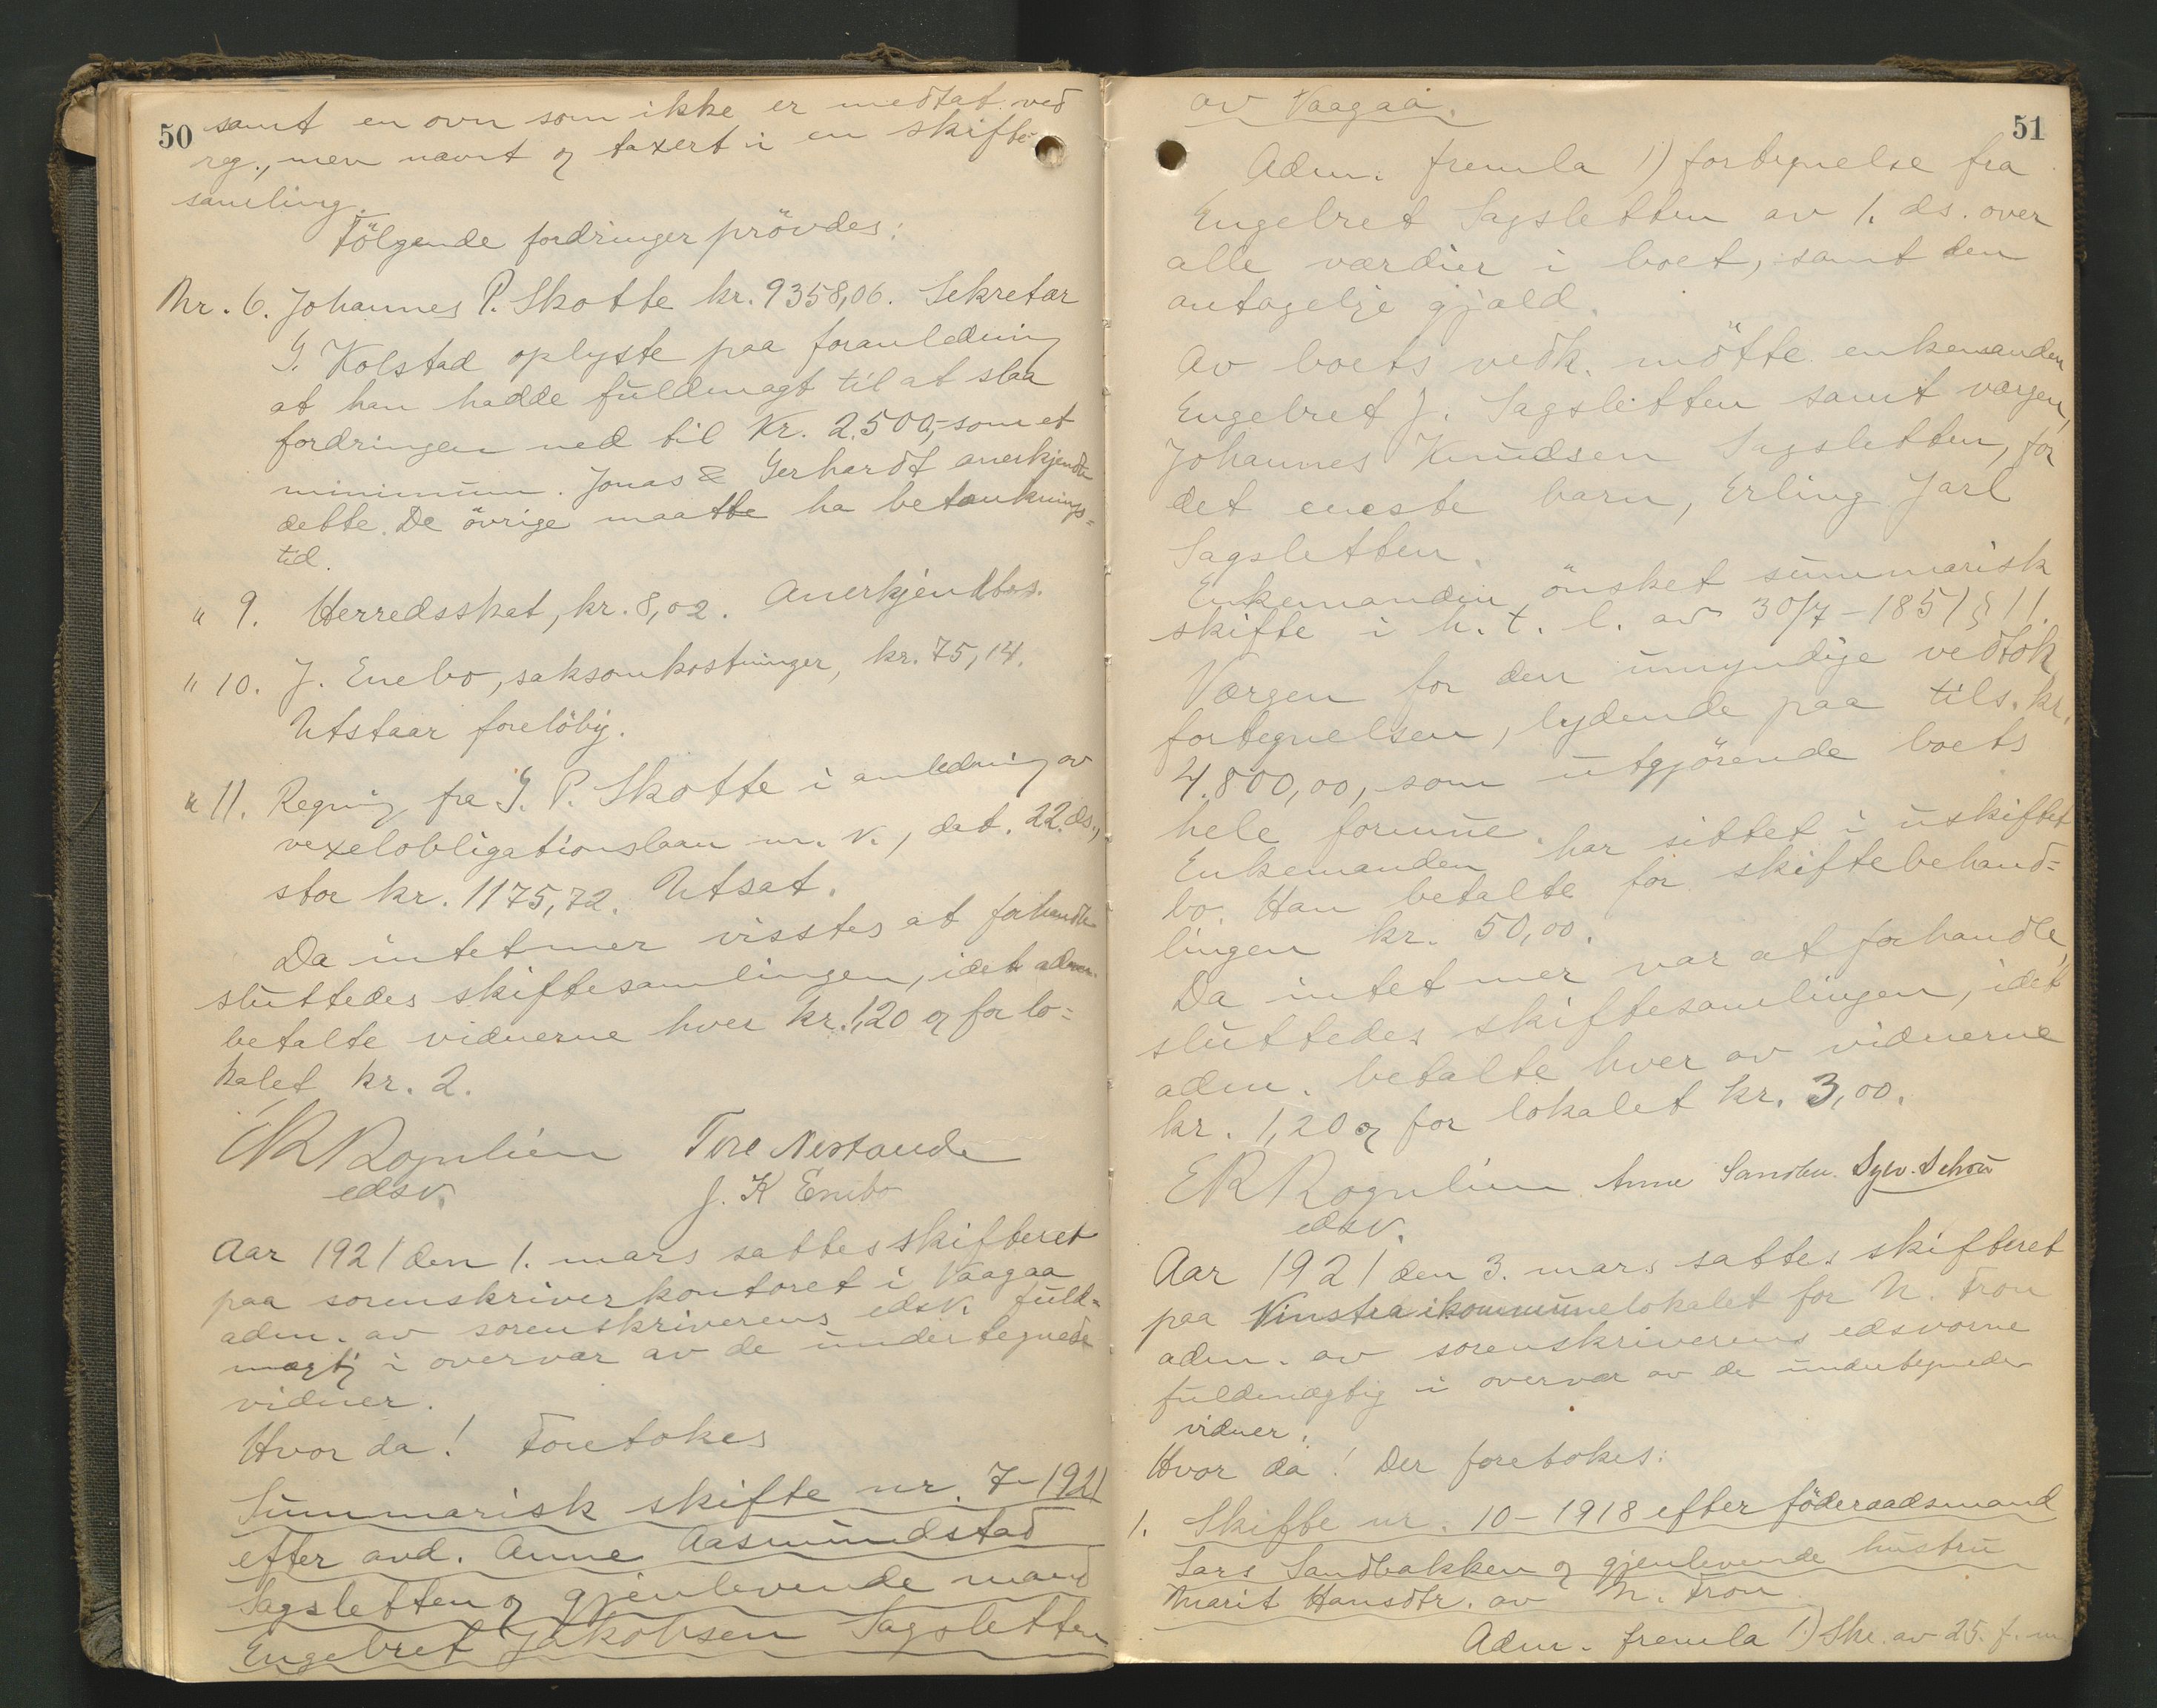 50
samt en ovn som ikke er medtat ved
reg., men nævnt og taxert i en skifte-
samling.
Følgende fordringer prövdes:
Nr. 6. Johannes P. Skotte kr. 9358,06. Sekretær
G. Kolstad oplyste paa foranledning
at han hadde fuldmagt til at slaa
fordringen ned til kr. 2.500,- som et
minimum. Jonas & Gerhardt anerkjendte
dette. De övrige maatte ha betænknings=
tid.
" 9. Herredsskat, kr. 8,02. Anerkjendtes.
" 10. J. Enebo, saksomkostninger, kr. 75,14.
Utstaar forelöbig.
" 11. Regning fra G. P. Skotte i anledning av
vexelobligationslaan m. v., dat. 22. ds.,
stor kr. 1175,72. Utsat.
Da intet mer visstes at forhandle
sluttedes skiftesamlingen, idet adm.
betalte vidnerne hver kr. 1,20 og for lo=
kalet kr. 2.
E R Rognlien Tore Nestande
edsv. J. K Enebo
Aar 1921 den 1. mars sattes skifteret
paa sorenskriverkontoret i Vaagaa
adm. av sorenskriverens edsv. fuld=
mægtig i overvær av de undertegnede
vidner.
Hvor da! Foretokes
Summarisk skifte nr. 7-1921
efter avd. Anne Aasmundstad
Sagsletten og gjenlevende mand
Engebret Jakobsen Sagsletten
51
av Vaagaa.
Adm. fremla 1) fortegnelse fra
Engebret Sagsletten av 1. ds. over
alle værdier i boet, samt den
antagelige gjæld.
Av boets vedk. mötte enkemanden,
Engebret J. Sagsletten samt værgen,
Johannes Knudsen Sagsletten, for
det eneste barn, Erling Jarl
Sagsletten.
Enkemanden önsket summarisk
skifte i h. t. l. av 30/7-1851 § 11.
Værgen for den umyndige vedtok
fortegnelsen, lydende paa tils. kr.
4.800,00, som utgjörende boets
hele formue.
Enkemanden har sittet i uskiftet
bo. Han betalte for skiftebehand=
lingen kr. 50,00.
Da intet mer var at forhandle,
sluttedes skiftesamlingen, idet
adm. betalte hver av vidnerne
kr. 1,20 og for lokalet kr. 3,00.
E R Rognlien Anne Sandbu. Sylv. Schou
edsv.
Aar 1921 den 3. mars sattes skifteret
paa Vinstra i kommunelokalet for N. Fron
adm. av sorenskriverens edsvorne
fuldmægtig i overvær av de undertegnede
vidner.
Hvor da! Der foretokes:
1. Skifte nr. 10-1918 efter föderaadsmand
Lars Sandbakken og gjenlevende hustru
Marit Hansdtr. av N. Fron
Adm. fremla 1) Skr. av 25. f. m.